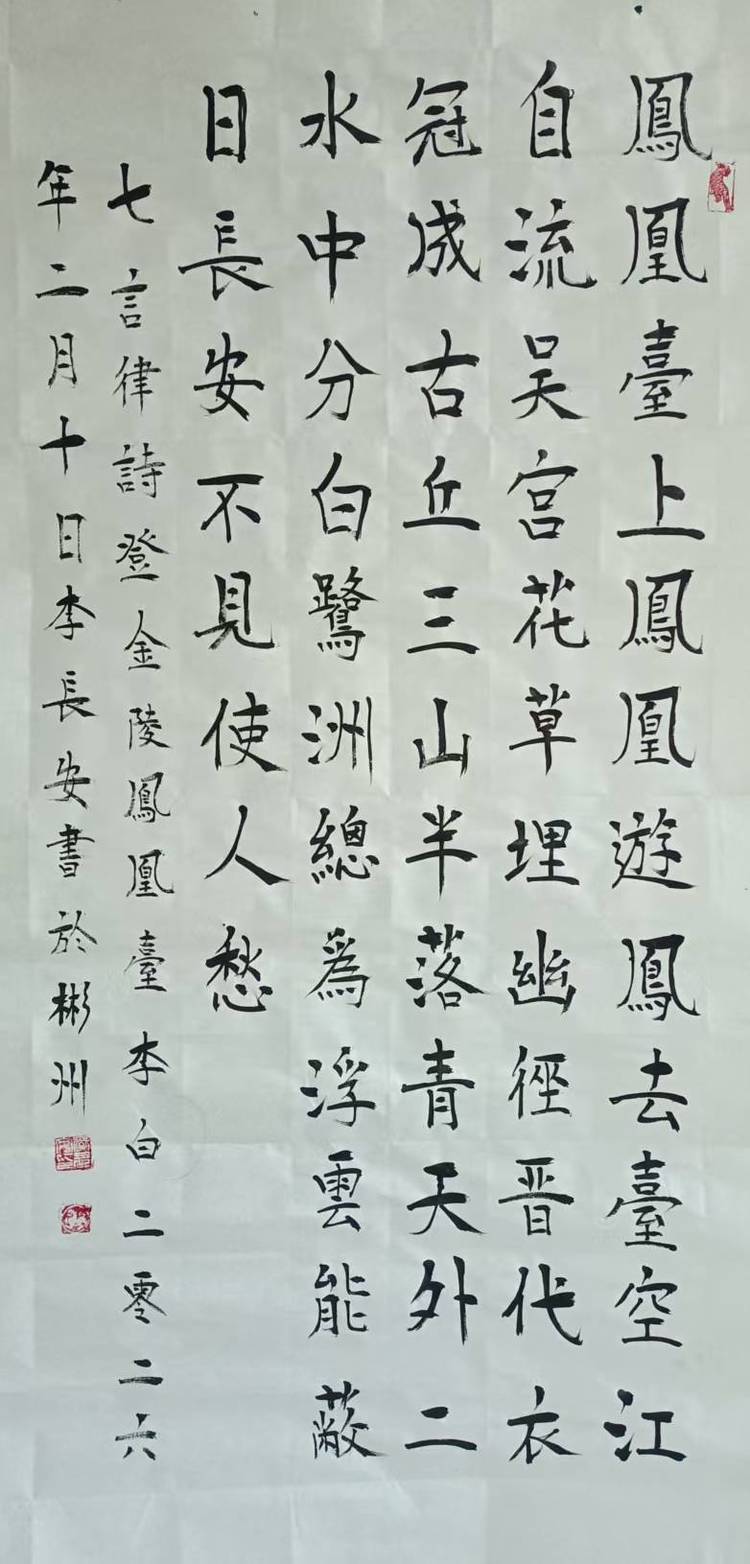 鳳凰臺上鳳凰遊鳳去臺空江
自流吳宮花草埋幽徑晉代衣
冠成古丘三山半落青天外二
水中分白鷺洲總為浮雲能蔽
日長安不見使人愁
七言律詩登金陵鳳凰臺李白二零二六
年二月十日李長安書於彬州